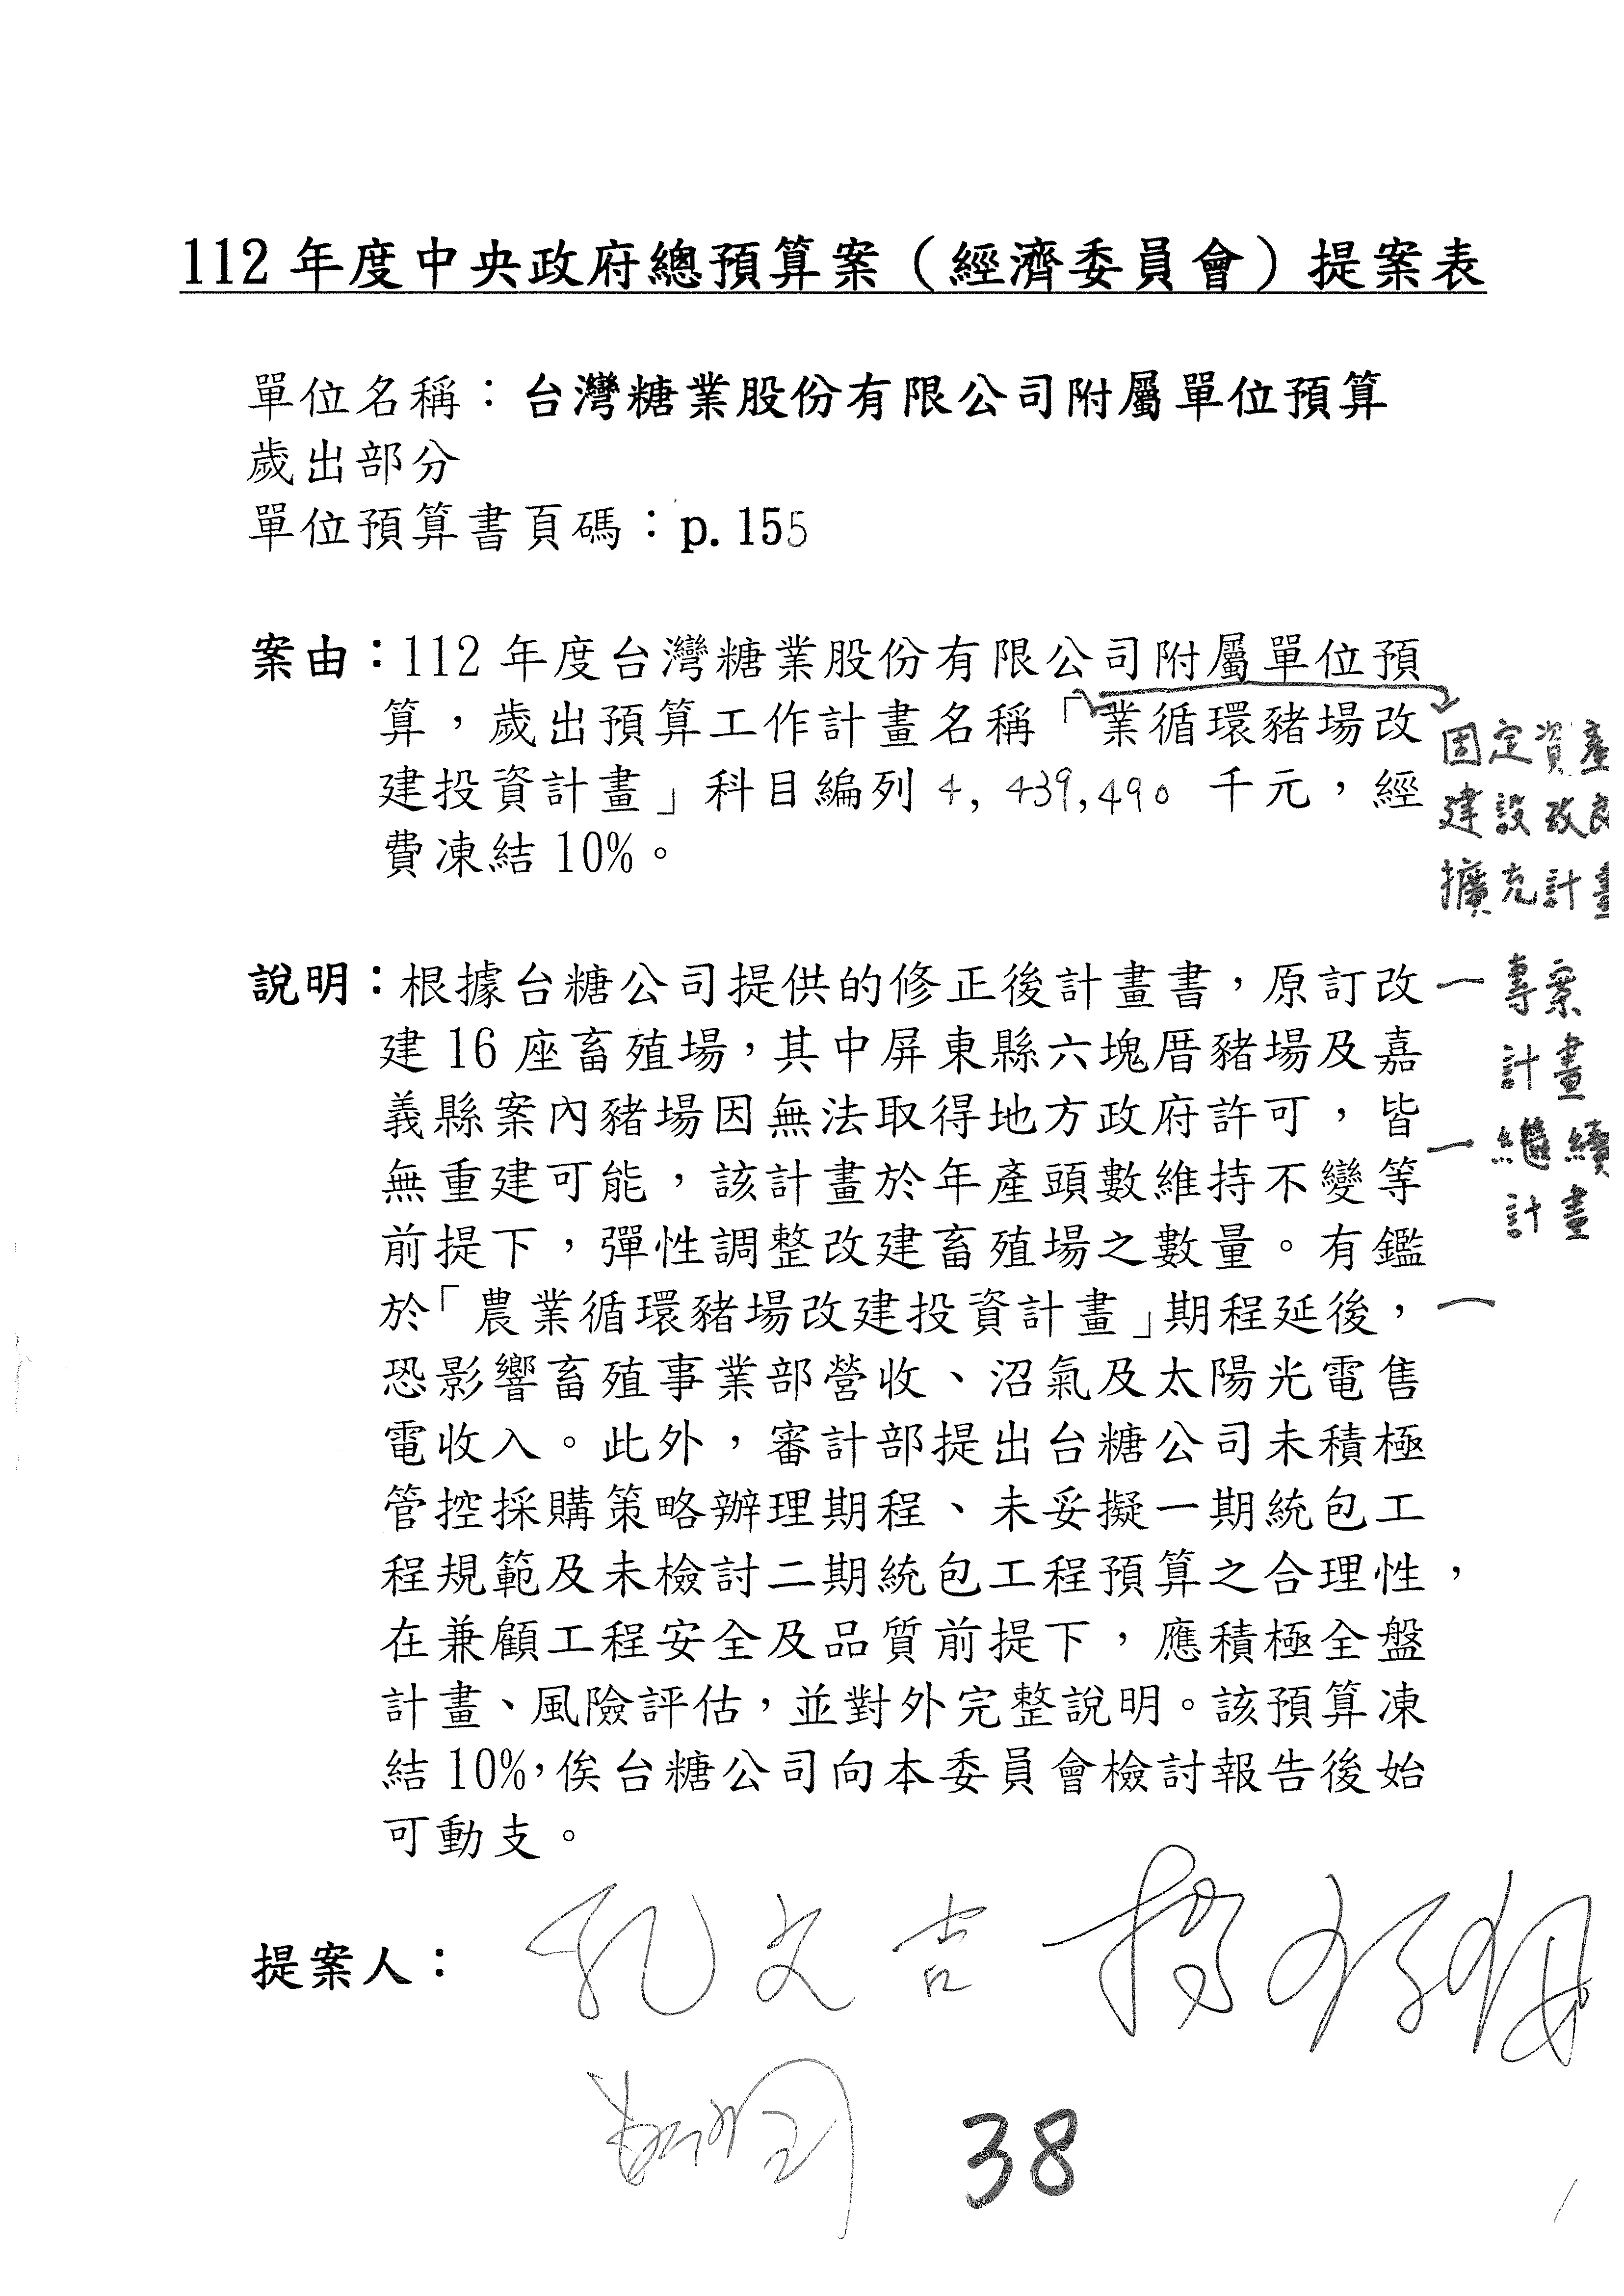 112 年度中央政府總預算案（經濟委員會）提案表
單位名稱：台灣糖業股份有限公司附屬單位預算
歲出部分
單位預算書頁碼：p. 155
案由：112 年度台灣糖業股份有限公司附屬單位預
算，歲出預算工作計畫名稱「業循環豬場改
建投資計畫」科目編列 4, 439,490 千元，經
費凍結 10%。
固定資產
建設改良
擴充計畫
一專案
計畫
一繼續
計畫
一
說明：根據台糖公司提供的修正後計畫書，原訂改
建 16 座畜殖場，其中屏東縣六塊厝豬場及嘉
義縣案內豬場因無法取得地方政府許可，皆
無重建可能，該計畫於年產頭數維持不變等
前提下，彈性調整改建畜殖場之數量。有鑑
於「農業循環豬場改建投資計畫」期程延後，
恐影響畜殖事業部營收、沼氣及太陽光電售
電收入。此外，審計部提出台糖公司未積極
管控採購策略辦理期程、未妥擬一期統包工
程規範及未檢討二期統包工程預算之合理性，
在兼顧工程安全及品質前提下，應積極全盤
計畫、風險評估，並對外完整說明。該預算凍
結 10%，俟台糖公司向本委員會檢討報告後始
可動支。
提案人：
孔文吉
38